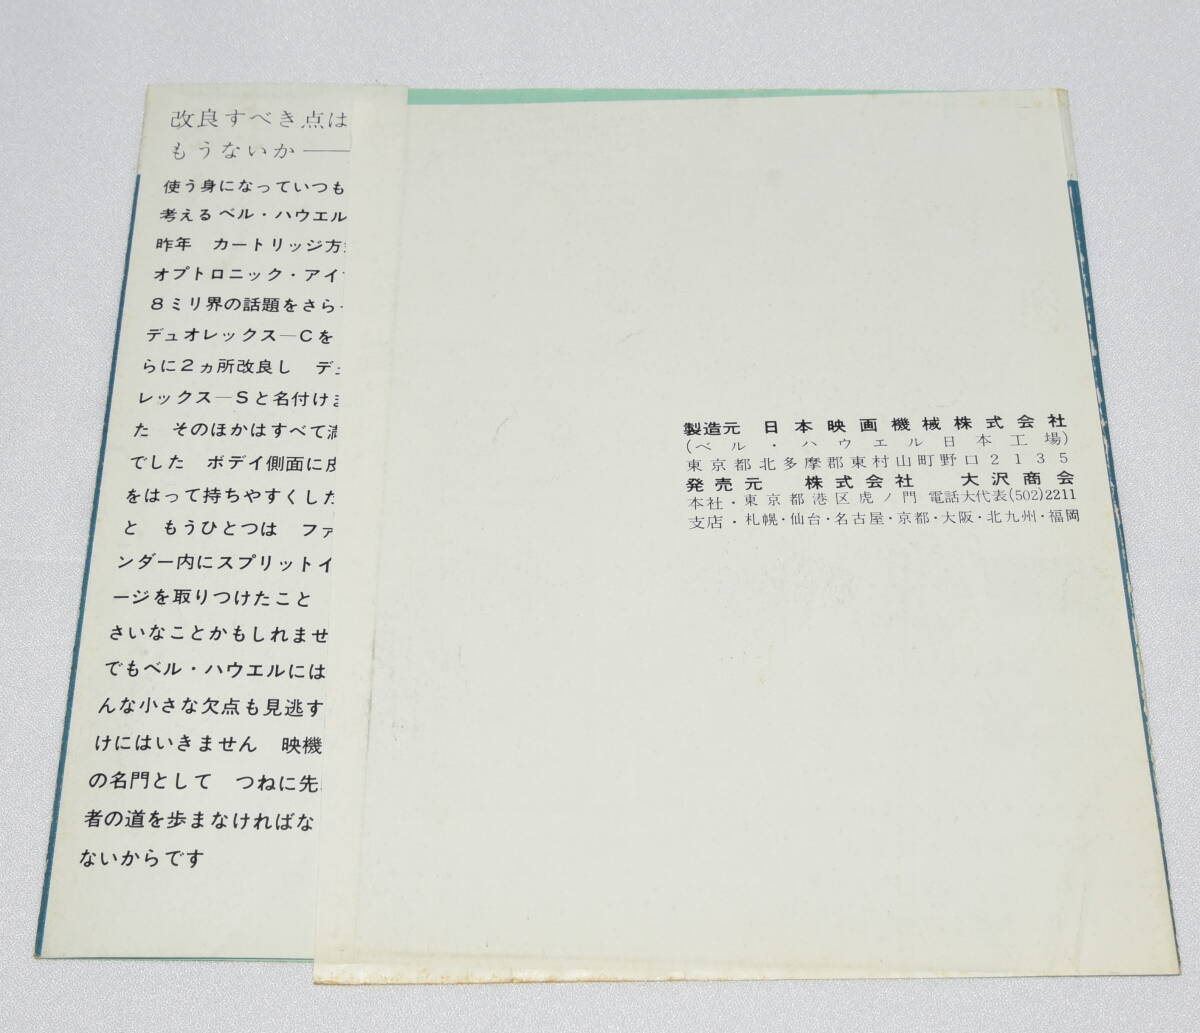 改良すべき点は
もうないか──
使う身になっていつも
考えるベル・ハウエル
昨年　カートリッジ方
オプトロニック・アイ
８ミリ界の話題をさら
デュオレックス―Ｃを
らに２ヵ所改良し　デ
レックス―Ｓと名付け
た　そのほかはすべて
でした　ボデイ側面に
をはって持ちやすくした
と　もうひとつは　ファ
ンダー内にスプリットイ
ージを取りつけたこと
さいなことかもしれませ
でもベル・ハウエルには
んな小さな欠点も見逃す
けにはいきません　映機
の名門として　つねに先
者の道を歩まなければな
ないからです
製造元　日本映画機械株式会社
(ベル・ハウエル日本工場)
東京都北多摩郡東村山町野口２１３５
発売元　株式会社　大沢商会
本社・東京都港区虎ノ門　電話大代表(502)2211
支店・札幌・仙台・名古屋・京都・大阪・北九州・福岡